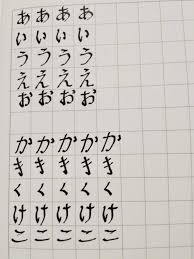 ああああ
いいいい
うううう
ええええ
おおおお
かかかかか
ききききき
くくくくく
けけけけけ
こここここ